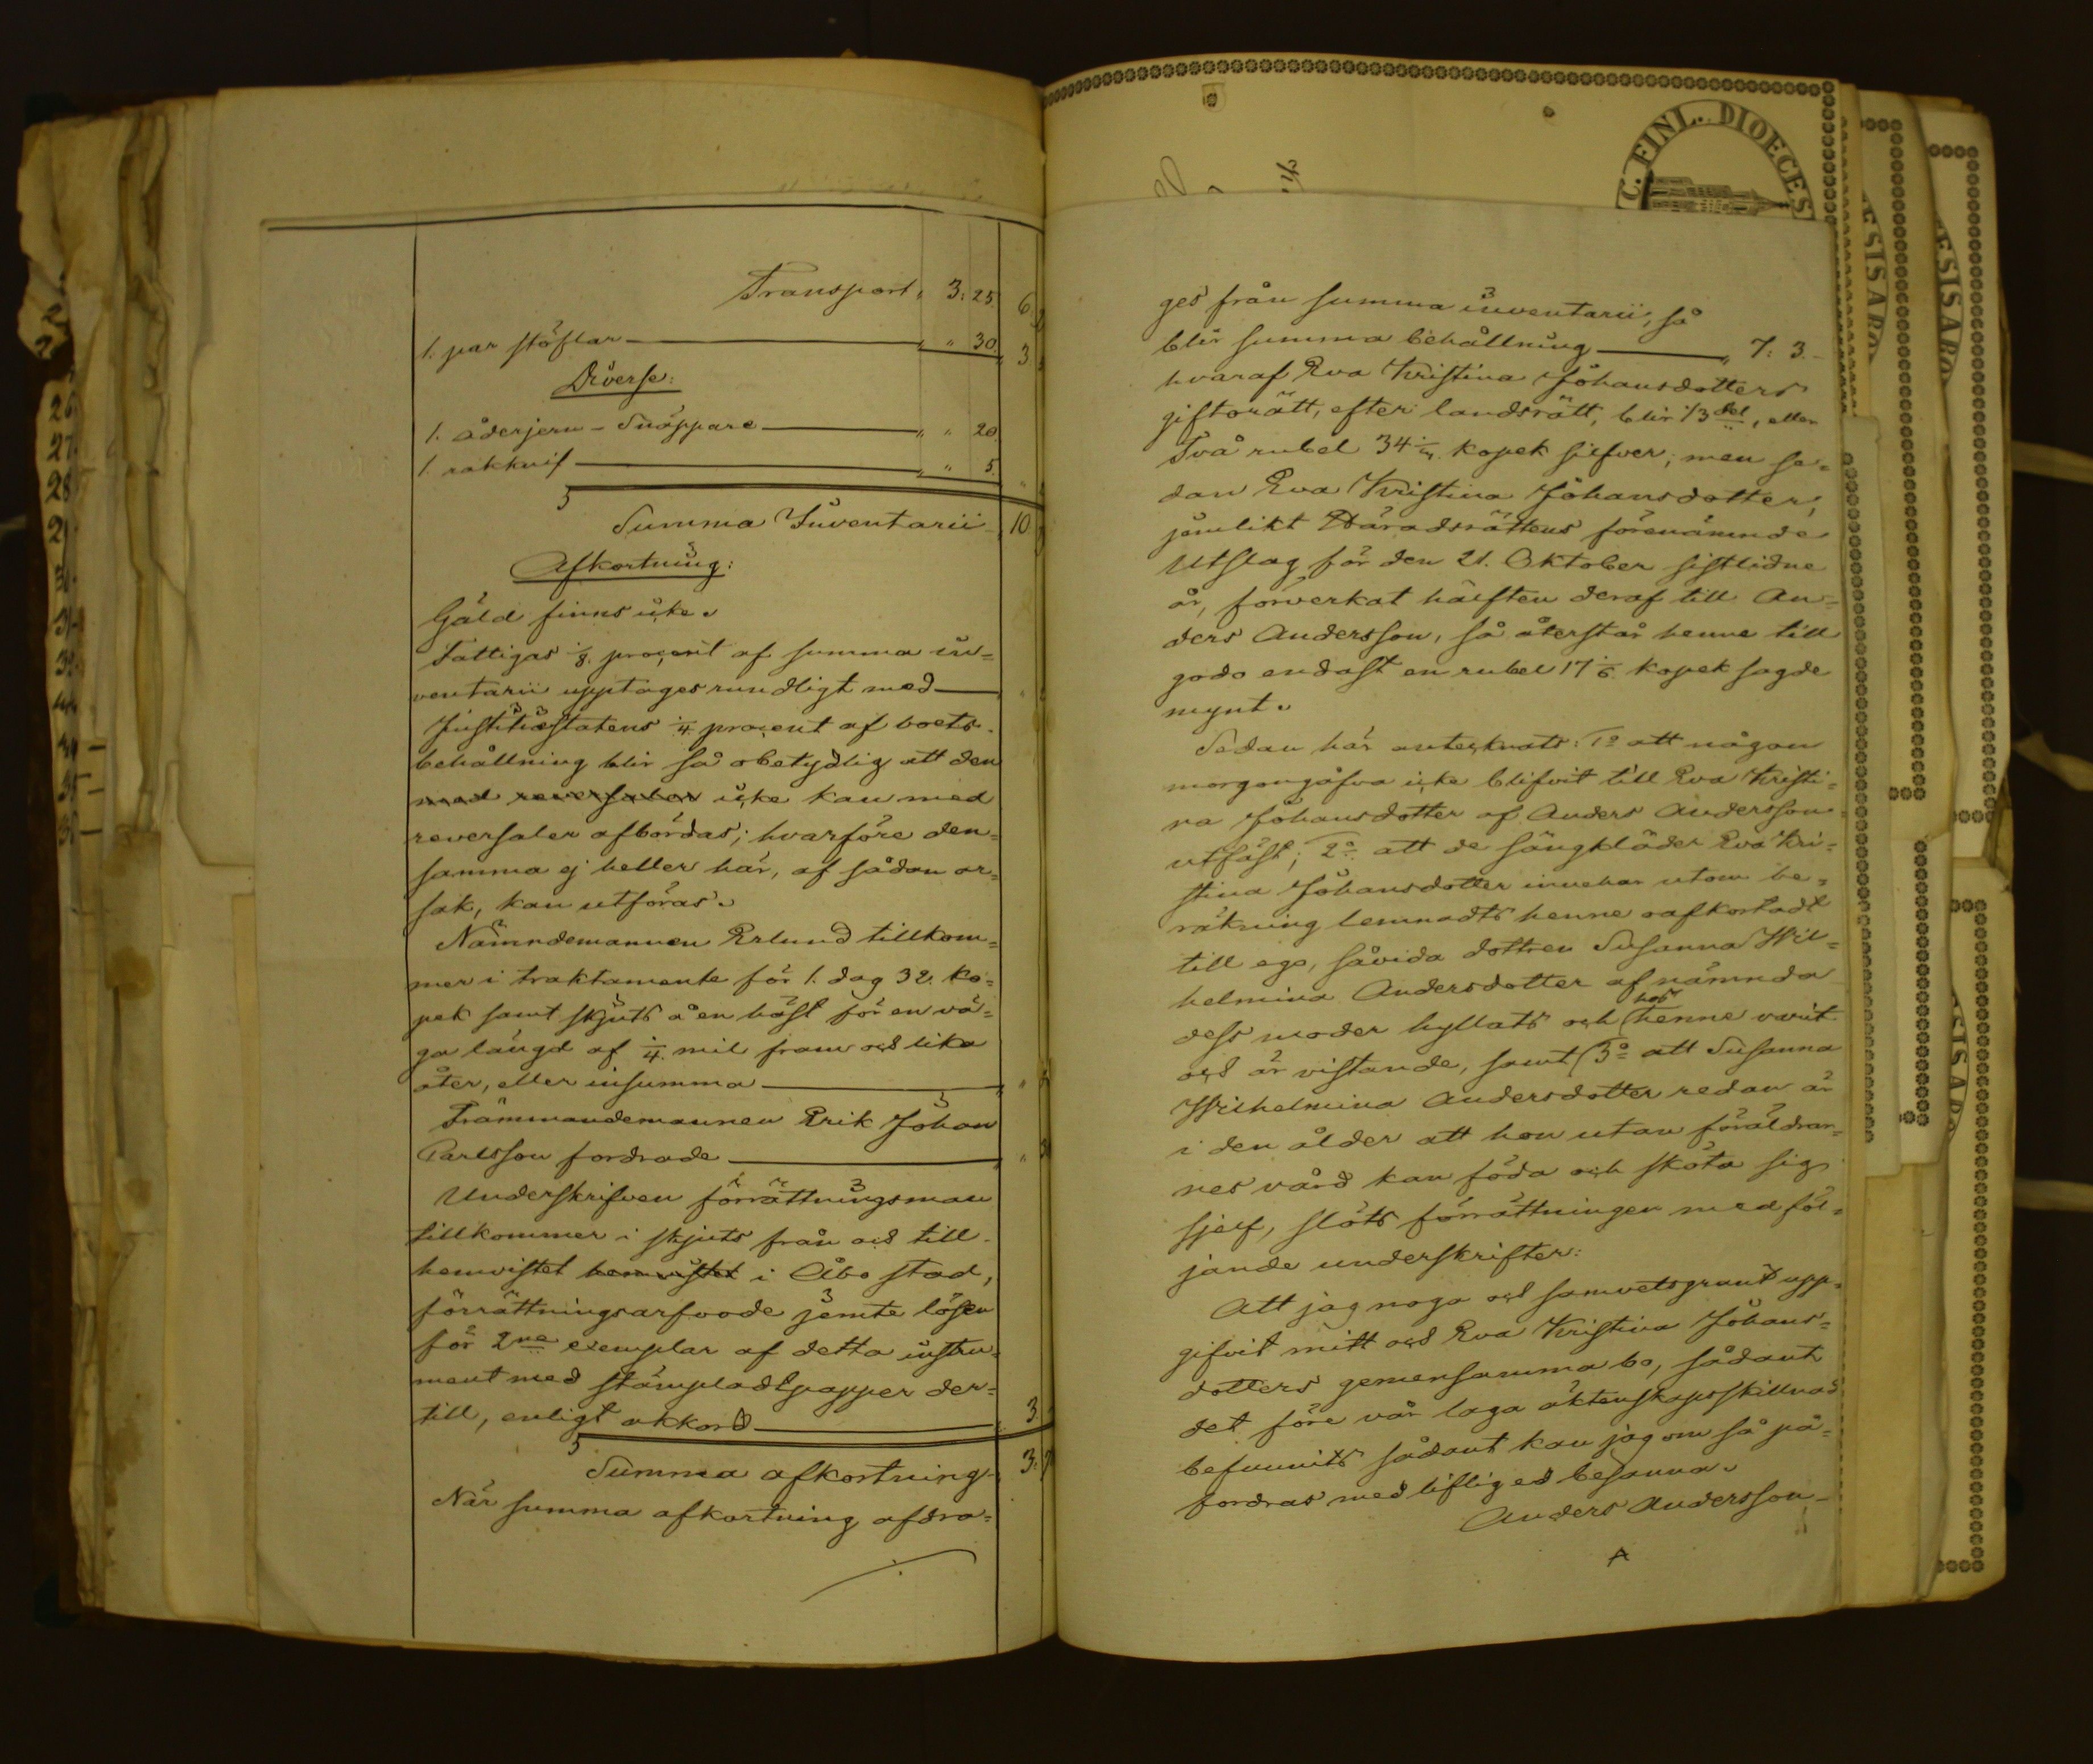 Transport „ 3: 25 6
1. par stöflar — „ „ 30. 3
Diverse:
1. åderjern-Snäppare — „ „ 20.
1. rakknif — „ „ 5.
Summa Inventarii 10
Afkortning:
Gäld finns icke.
Fattigas 1/8. procent af summa in=
ventarii upptages rundligt med —
Justitiæstatens 1/4 procent af boets
behållning blir så obetydlig att den
med reversaler icke kan med
reversaler afbördas; hvarföre den=
samma ej heller här, af sådan or=
sak, kan utföras.
Nämndemannen Erlund tillkom=
mer i traktamente för 1. dag 32. ko=
pek samt skjuts å en häst för en vä=
ga längd af 1/4. mil fram och lika
åter, eller insumma —
Främmandemannen Erik Johan
Carlsson fordrade —
Underskrifven förrättningsman
tillkommer i skjuts från och till
hemvistet hemvistet i Åbo stad,
förrättningsarfvode jemte lösen
för 2ne exemplar af detta instru=
ment med stämpladtpapper der=
till, enligt akkord — 3
Summa afkortning 3.
När summa afkortning afdra=
C. FINL. DIOECES
ges från summa inventarii, så
blir summa behållning — „ 7: 3.
hvaraf Eva Kristina Johansdotters
giftorätt, efter landsrätt, blir 1/3 del, eller
Två rubel 34 kopek silfver; men se=
dan Eva Kristina Johansdotter,
jemlikt Häradsrättens förenämnde
Utslag för den 21. Oktober sistlidne
år, förverkat hälften deraf till An=
ders Andersson, så återstår henne till
godo endast en rubel 17 1/6. kopek sagde
mynt.
Sedan här antecknats: 1o att någon
morgongåfva icke blifvit till Eva Kristi=
na Johansdotter af Anders Andersson
utfäst; 2o att de sängkläder Eva Kri=
stina Johansdotter innehar utom be=
räkning lemnadts henne oafkortadt
till ego, såvida dottren Susanna Wil=
helmina Andersdotter af nämnda
dess moder hyllats och hos henne varit
och är vistande, samt 3o att Susanna
Wilhelmina Andersdotter redan är
i den ålder att hon utan föräldrar=
nes vård kan föda och sköta sig
sjelf, slöts förrättningen med föl=
jande underskrifter:
Att jag noga och samvetsgrant upp=
gifvit mitt och Eva Kristina Johans=
dotters gemensamma bo, sådant
det före vår laga äktenskapsskillnad
befunnits sådant kan jag om så på=
fordras med liflig ed besanna.
Anders Andersson
ESISABO
ESISABO
26
27.
28